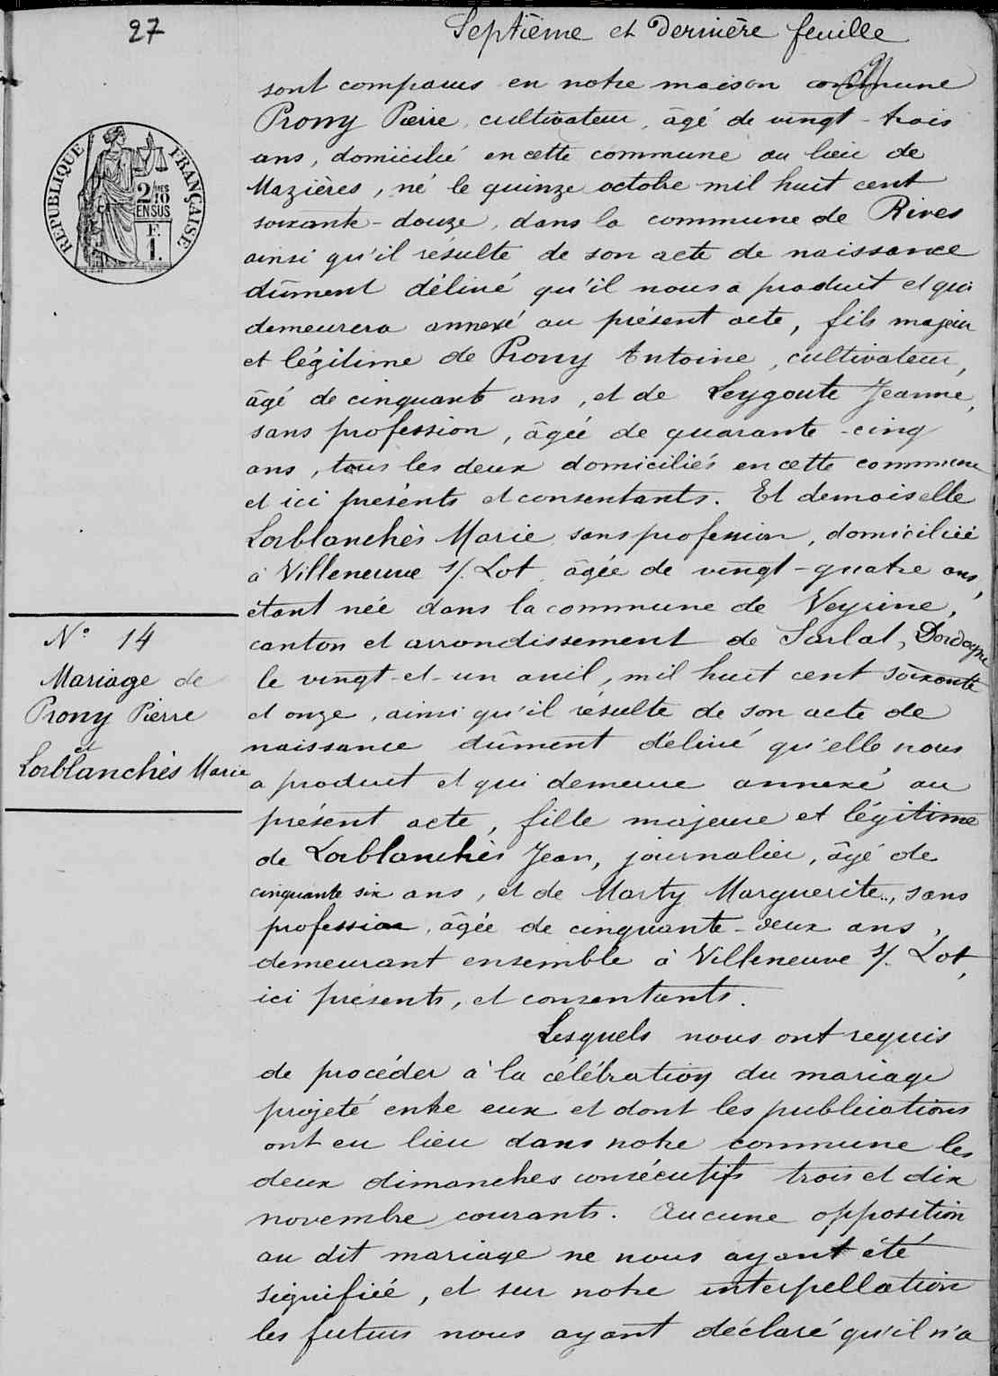 27
Septième et Dernière feuille
RÉPUBLIQUE FRANÇAISE
2/10 EN SUS
F.
1.
sont comparus en notre maison commune
Prony Pierre, cultivateur, âgé de vingt-trois
ans, domicilié en cette commune au lieu de
Mazières, né le quinze octobre mil huit cent
soixante-douze, dans la commune de Rives
ainsi qu'il résulte de son acte de naissance
dûment délivré qu'il nous a produit et qui
demeurera annexé au présent acte, fils majeur
et légitime de Prony Antoine, cultivateur,
âgé de cinquante ans, et de Leygoute Jeanne,
sans profession, âgée de quarante-cinq
ans, tous les deux domiciliés en cette commune
et ici présents et consentants. Et demoiselle
Lorblanchès Marie sans profession, domiciliée
à Villeneuve s/. Lot, âgée de vingt-quatre ans,
étant née dans la commune de Veyrine,
N° 14
canton et arrondissement de Sarlat, Dordogne
Mariage de
le vingt-et-un avril, mil huit cent soixante
Prony Pierre
et onze, ainsi qu'il résulte de son acte de
et
naissance dûment délivré qu'elle nous
Lorblanchès Marie
a produit et qui demeure annexé au
présent acte, fille majeure et légitime
de Lorblanchès Jean, journalier, âgé de
cinquante six ans, et de Marty Marguerite, sans
profession, âgée de cinquante-deux ans,
demeurant ensemble à Villeneuve s/. Lot,
ici présents, et consentants.
Lesquels nous ont requis
de procéder à la célébration du mariage
projeté entre eux et dont les publications
ont eu lieu dans notre commune les
deux dimanches consécutifs trois et dix
novembre courants. Aucune opposition
au dit mariage ne nous ayant été
signifiée, et sur notre interpellation
les futurs nous ayant déclaré qu'il n'a